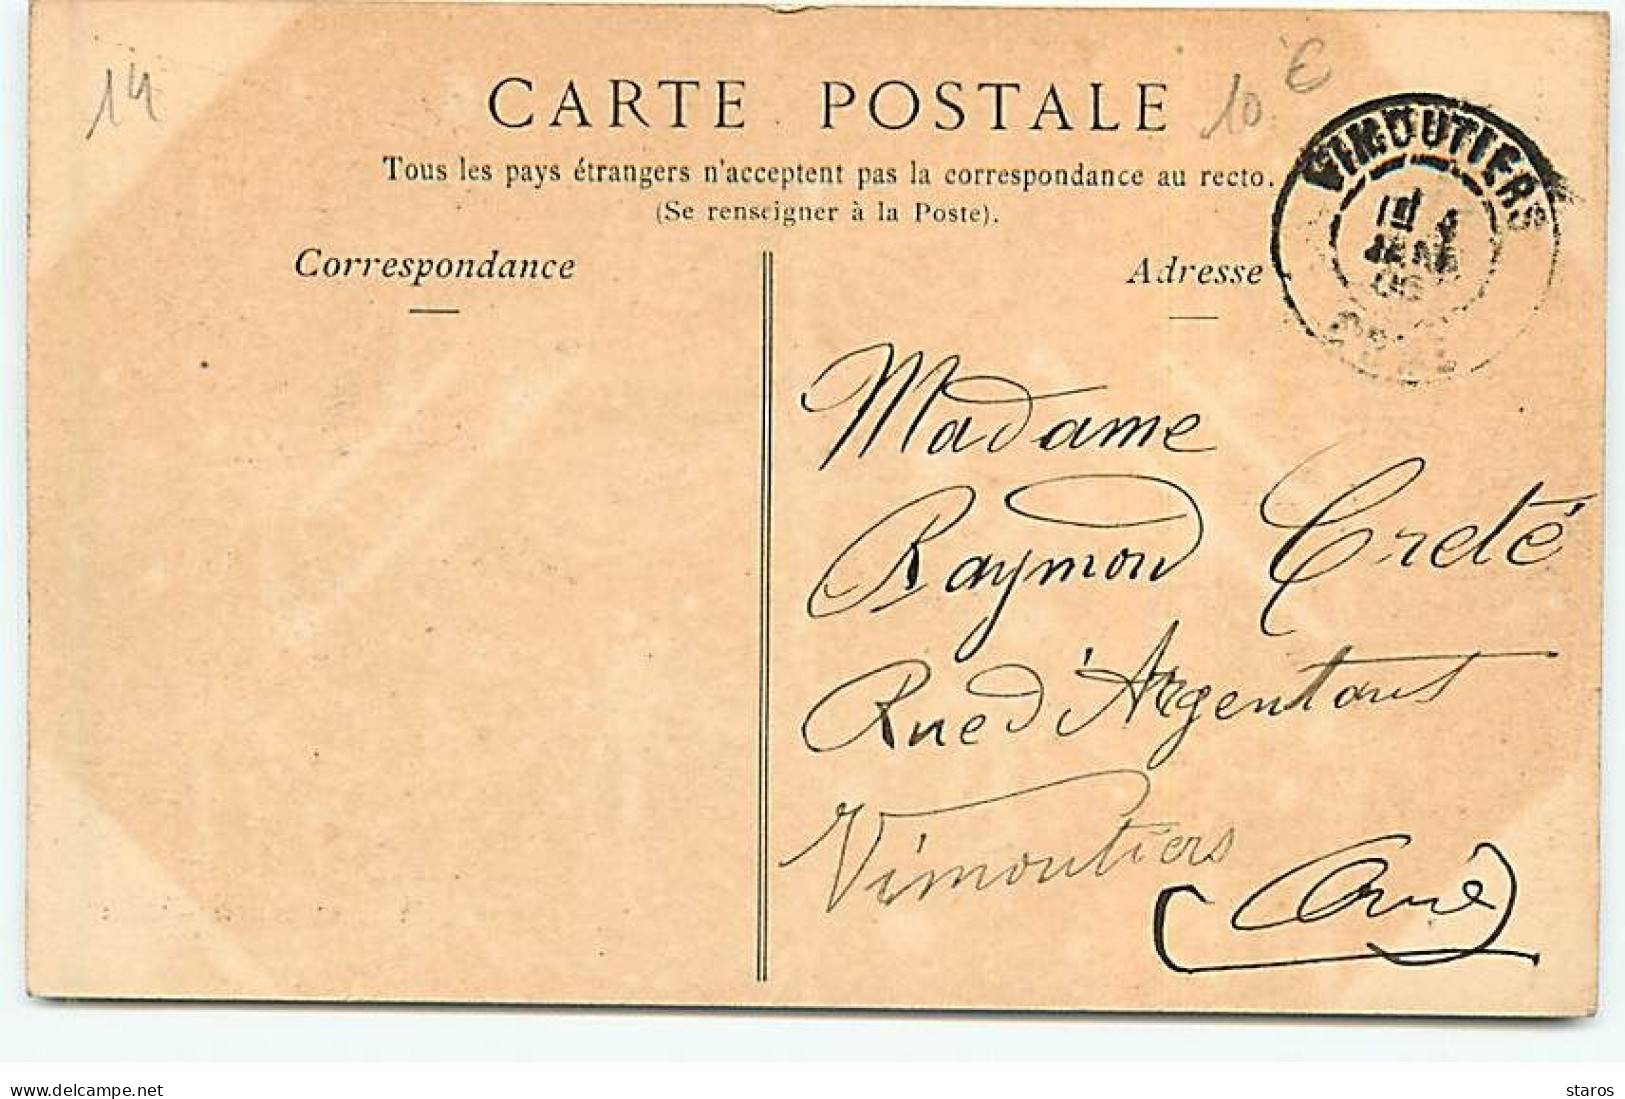 14
10 €
CARTE POSTALE
Tous les pays étrangers n'acceptent pas la correspondance au recto.
(Se renseigner à la Poste).
Correspondance
Adresse
VIMOUTIERS
JANV
06
ORNE
Madame
Raymond Creté
Rue d'Argentans
Vimoutiers
(Orne)
www.delcampe.net
staros